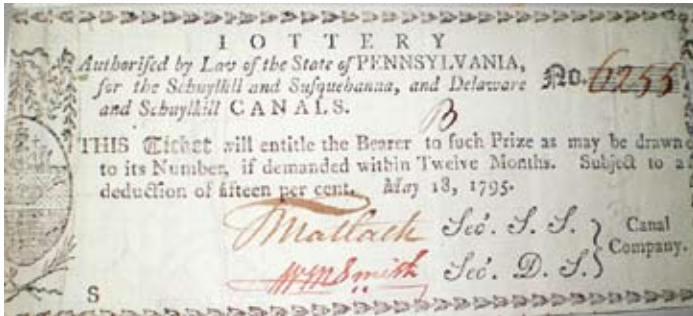 LOTTERY
Authoriſed by Law of the State of PENNSYLVANIA,
for the Schuylkill and Suſquehanna, and Delaware
and Schuylkill CANALS.
No. 6255
B
THIS Ticket will entitle the Bearer to ſuch Prize as may be drawn
to its Number, if demanded within Twelve Months. Subject to a
deduction of fifteen per cent. May 18, 1795.
T Matlack Sec'. S. S.
Wm Smith Sec'. D. S.
Canal
Company.
S